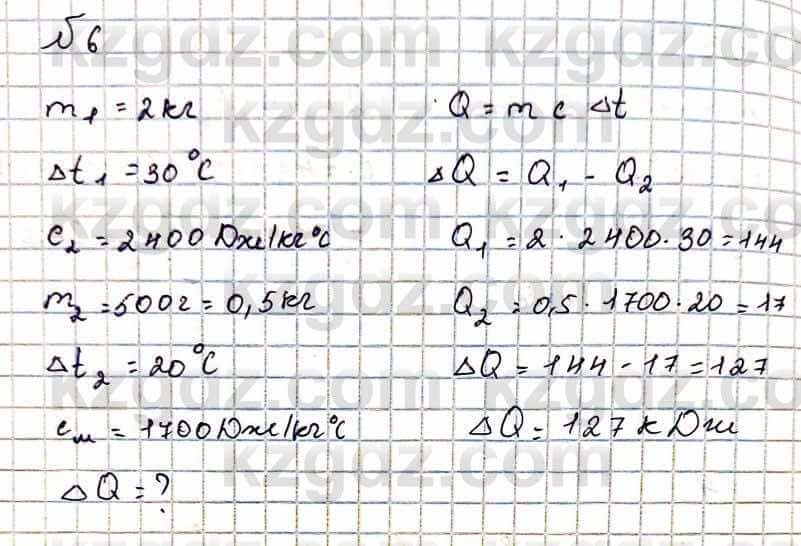 №6
m₁ = 2 кг
Δt₁ = 30°C
c₂ = 2400 Дж/кг°С
m₂ = 500 г = 0,5 кг
Δt₂ = 20°C
cм = 1700 Дж/кг°С
ΔQ = ?
Q = m c Δt
ΔQ = Q₁ - Q₂
Q₁ = 2 · 2400 · 30 = 144
Q₂ = 0,5 · 1700 · 20 = 17
ΔQ = 144 - 17 = 127
ΔQ = 127 кДж
kzgdz.com